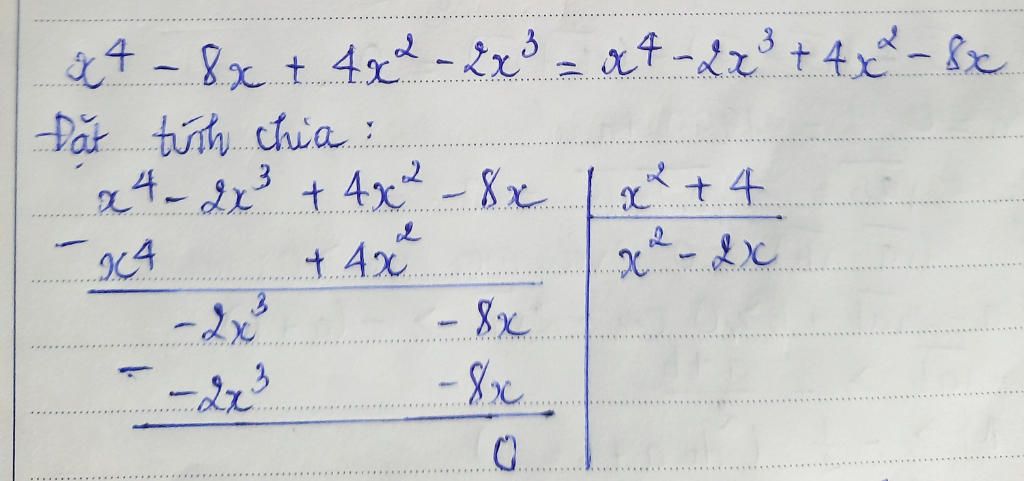 x⁴ - 8x + 4x² - 2x³ = x⁴ - 2x³ + 4x² - 8x
Đặt tính chia :
x⁴ - 2x³ + 4x² - 8x | x² + 4
- x⁴ + 4x² | x² - 2x
-2x³ - 8x
- -2x³ - 8x
0